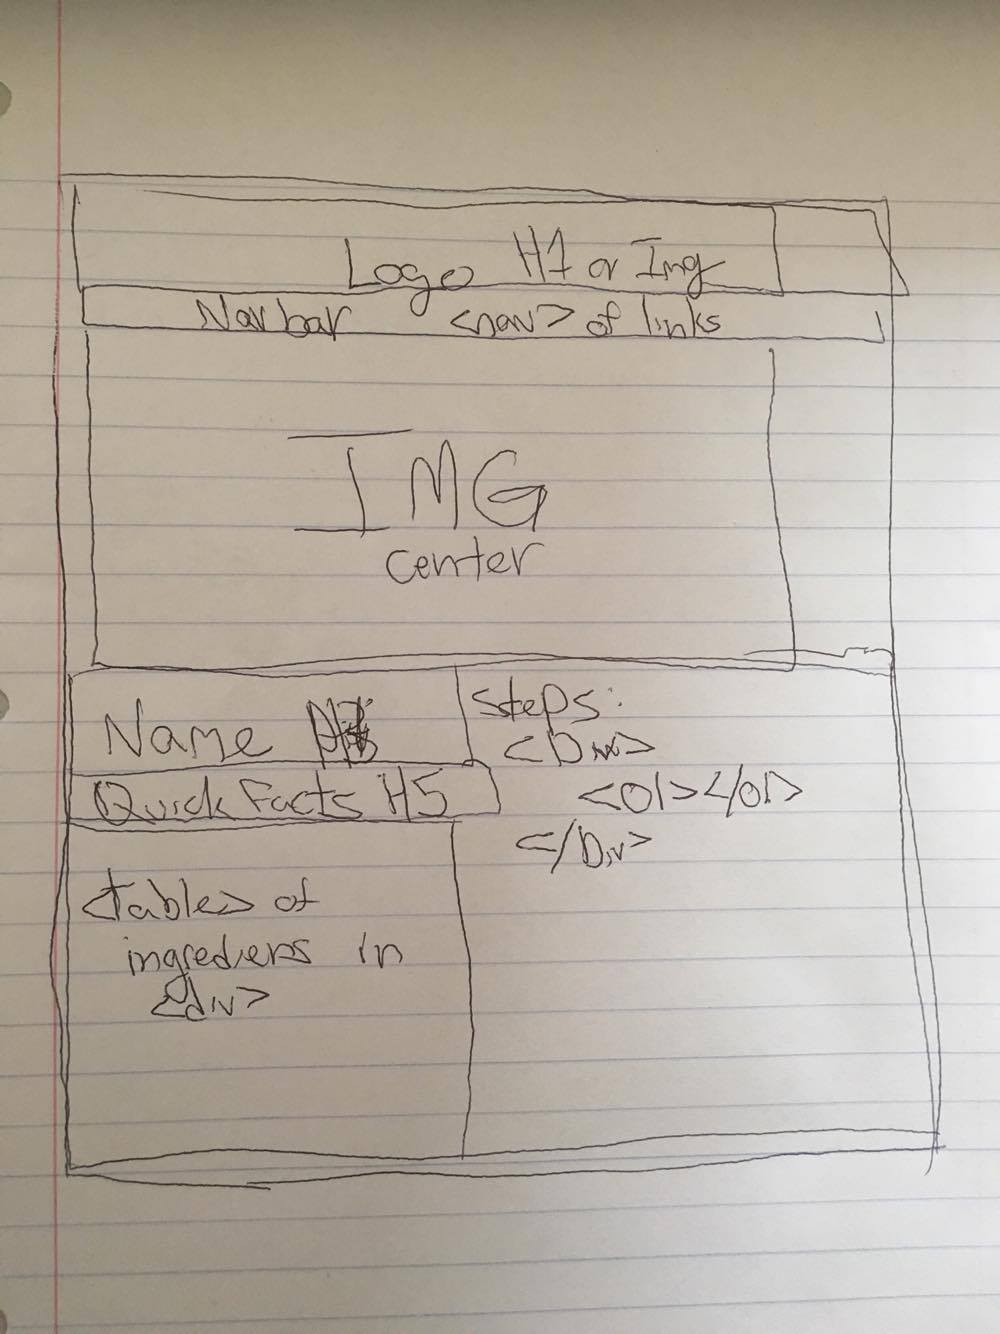 Logo H1 or Img
Navbar <nav> of links
IMG
center
Name
Quick Facts H5
<table> of
ingrediens in
<div>
Steps:
<Div>
<ol></ol>
</Div>